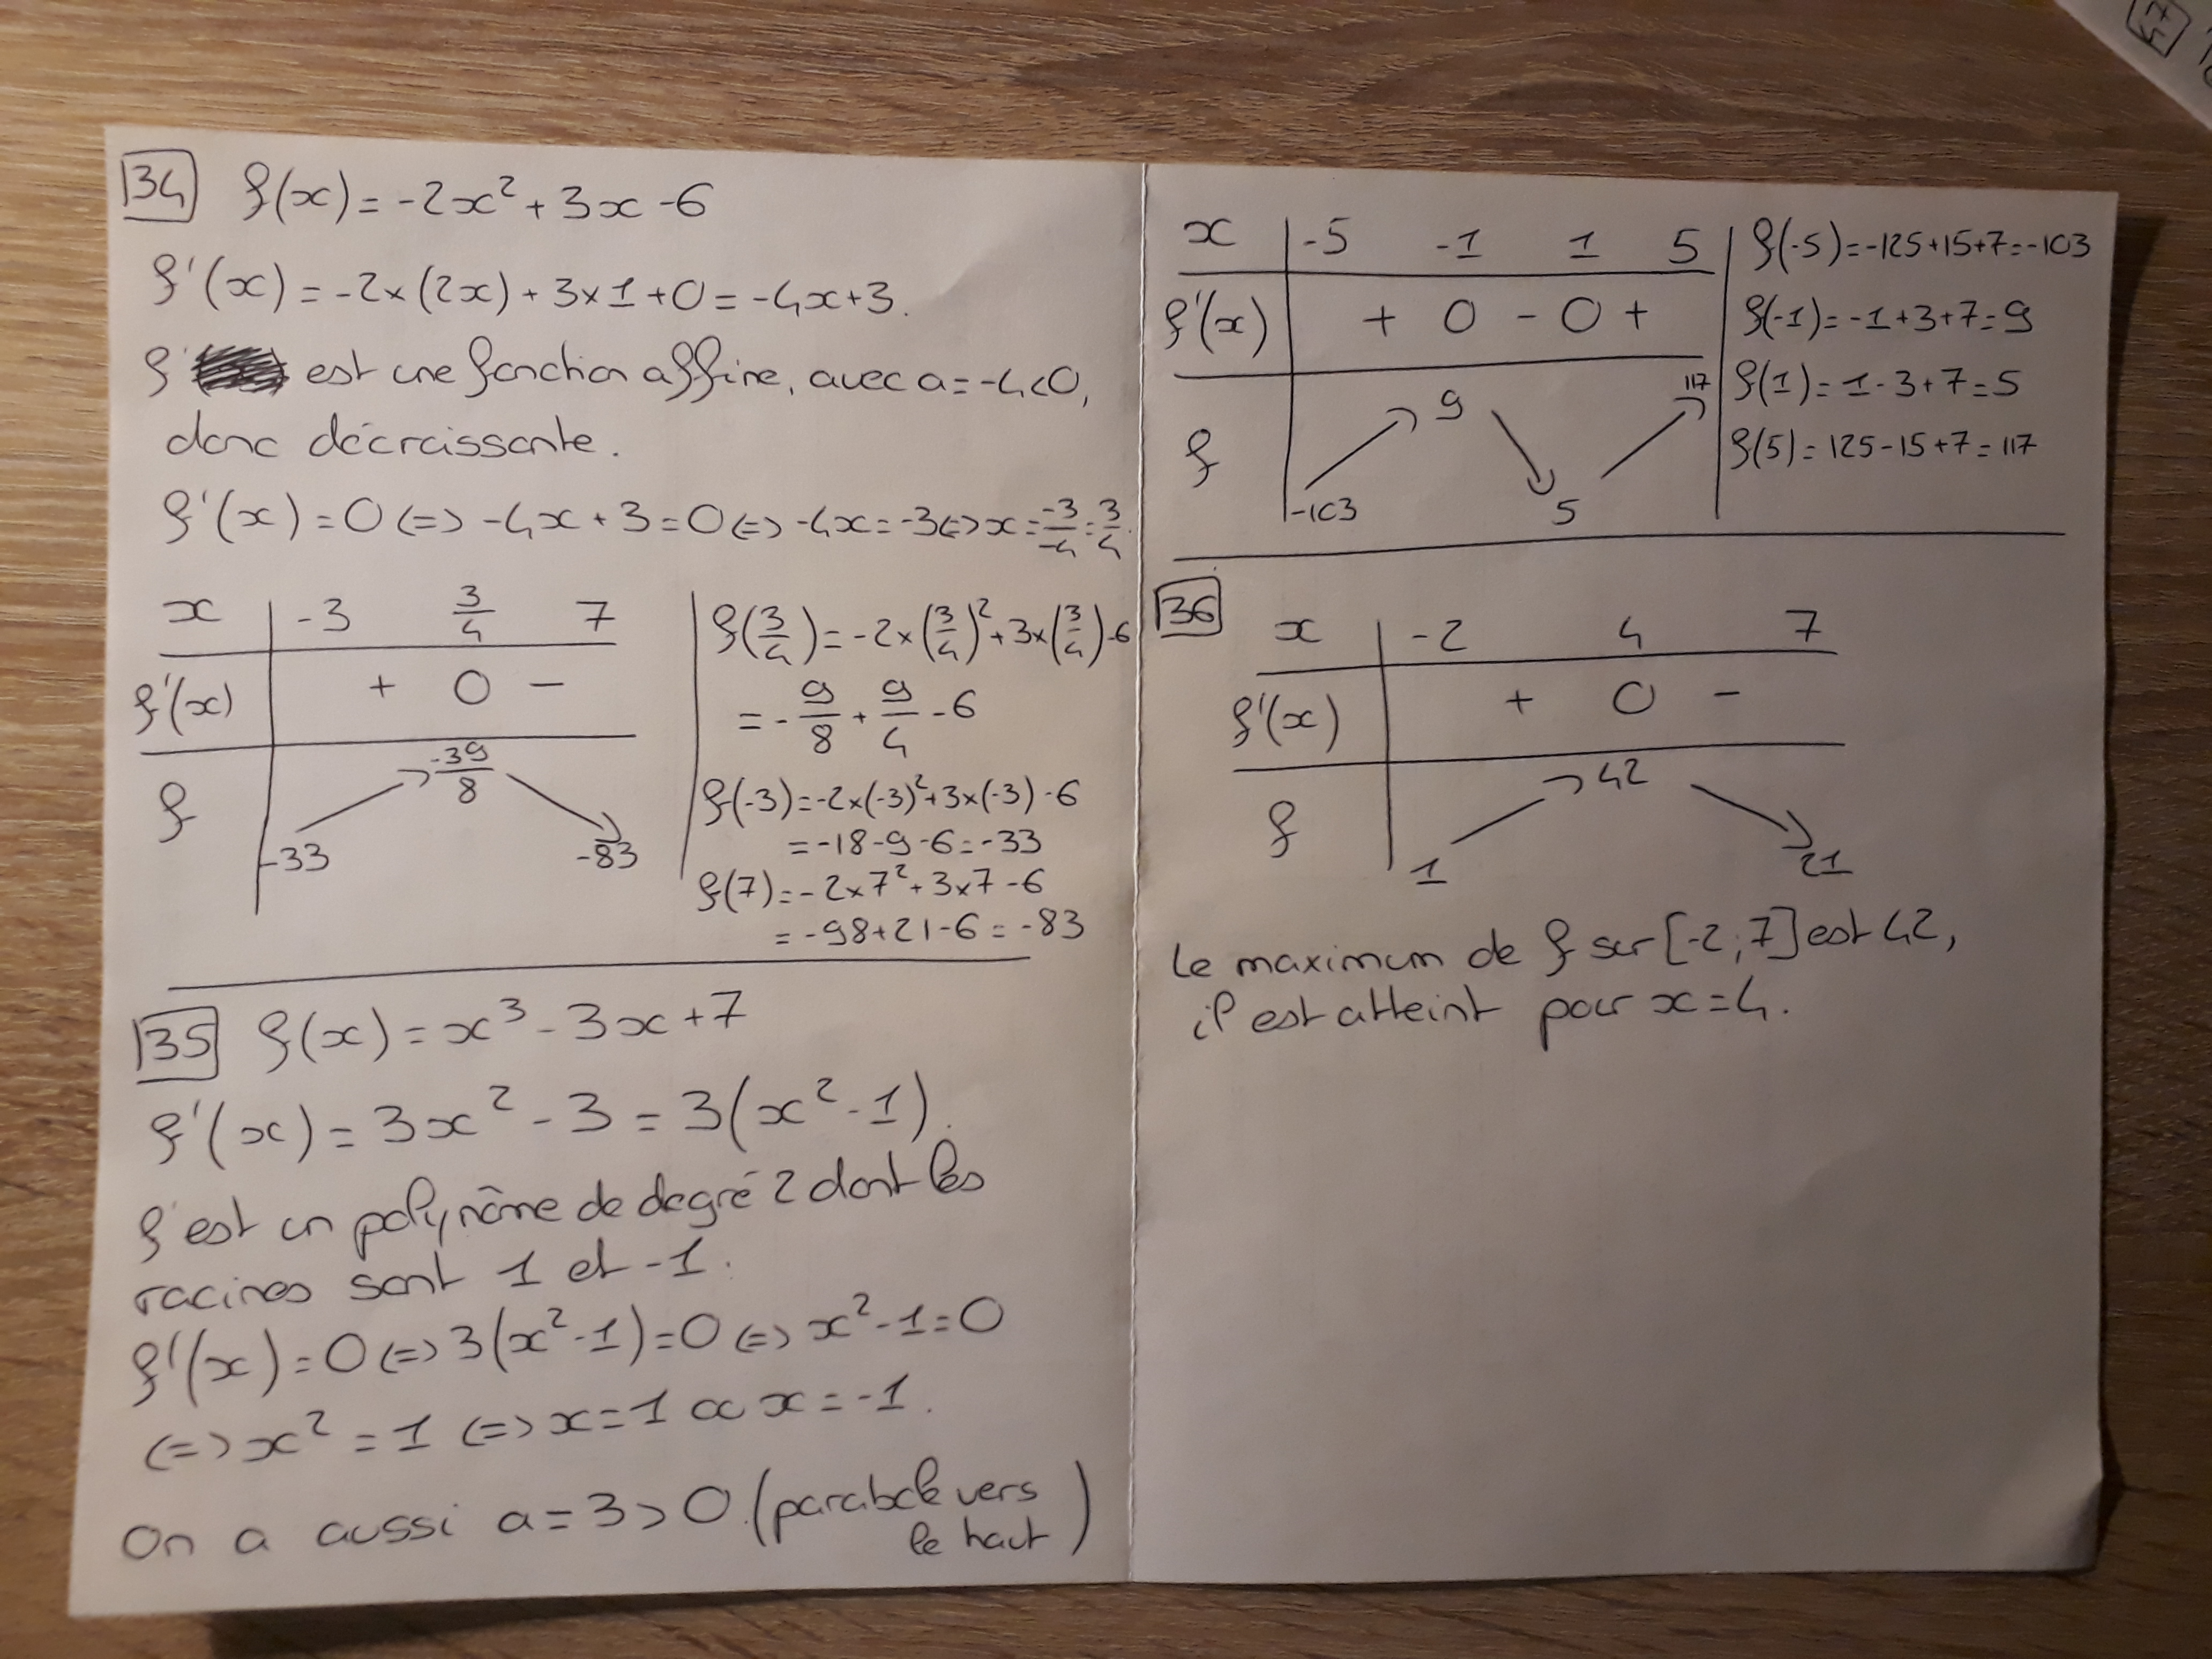 34 f(x) = -2x² + 3x - 6
f'(x) = -2×(2x) + 3×1 + 0 = -4x+3.
f' est une fonction affine, avec a = -4<0,
donc décroissante.
f'(x) = 0 <=> -4x + 3 = 0 <=> -4x = -3 <=> x = -3/-4 = 3/4.
x -3 3/4 7
f'(x) + 0 -
f -33 -39/8 -83
f(3/4) = -2×(3/4)² + 3×(3/4) - 6
= -9/8 + 9/4 - 6
f(-3) = -2×(-3)² + 3×(-3) - 6
= -18 - 9 - 6 = -33
f(7) = -2×7² + 3×7 - 6
= -98 + 21 - 6 = -83
35 f(x) = x³ - 3x + 7
f'(x) = 3x² - 3 = 3(x² - 1).
f' est un polynôme de degré 2 dont les
racines sont 1 et -1.
f'(x) = 0 <=> 3(x² - 1) = 0 <=> x² - 1 = 0
<=> x² = 1 <=> x = 1 ou x = -1.
On a aussi a = 3 > 0. (parabole vers
le haut)
x -5 -1 1 5
f'(x) + 0 - 0 +
f -103 9 5 117
f(-5) = -125+15+7 = -103
f(-1) = -1+3+7 = 9
f(1) = 1-3+7 = 5
f(5) = 125-15+7 = 117
36 x -2 4 7
f'(x) + 0 -
f 1 42 21
Le maximum de f sur [-2;7] est 42,
il est atteint pour x = 4.